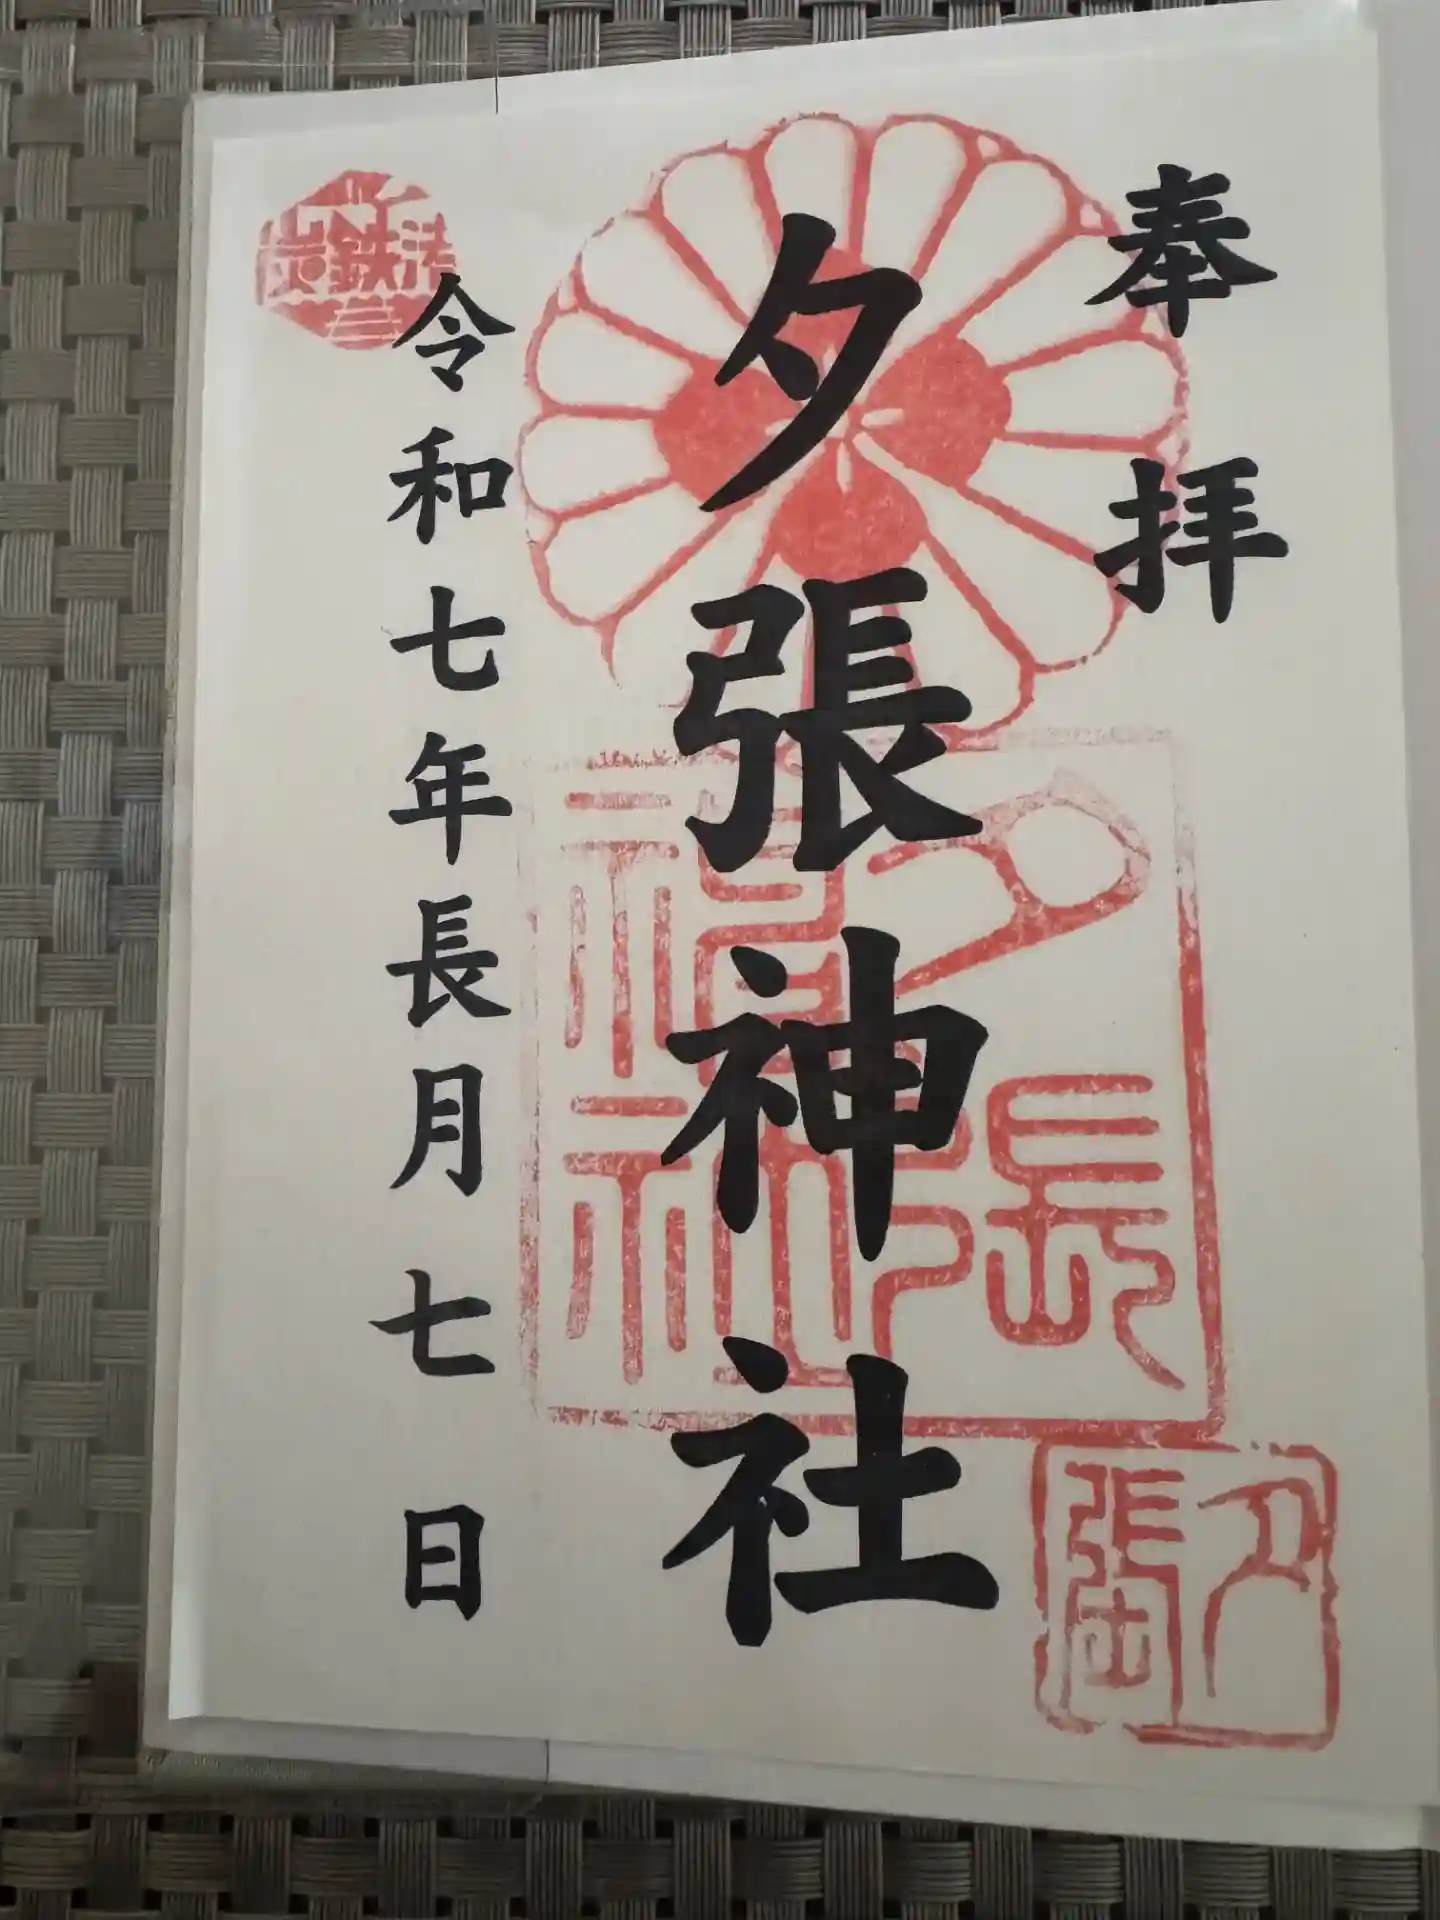 奉拝
夕張神社
令和七年長月七日
夕張神社
夕張
炭鉄港